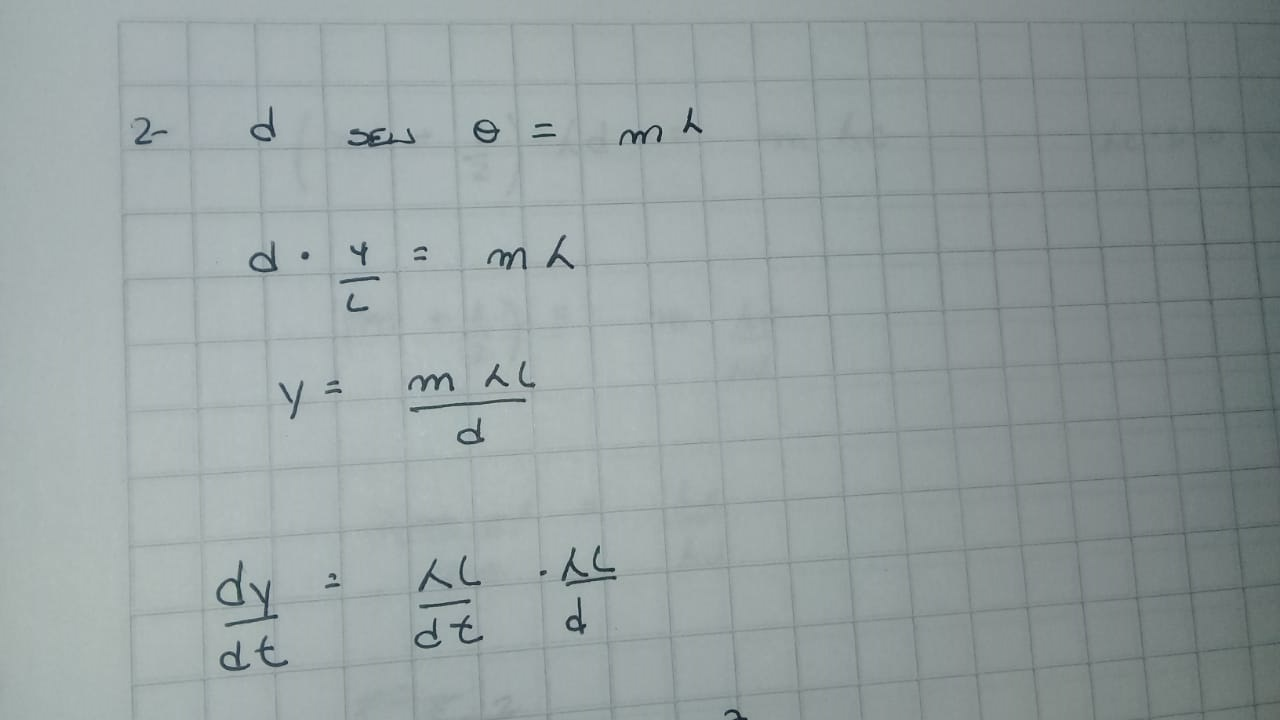 2- d sen θ = m λ
d · y/L = m λ
y = m λL/d
dy/dt = λL/dt · λL/d